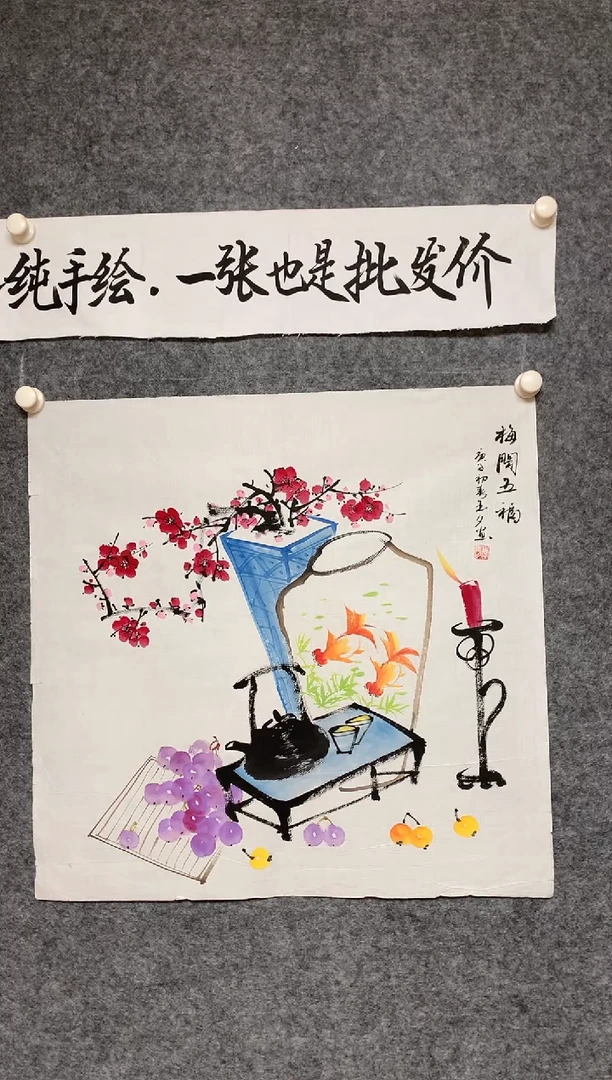 纯手绘.一张也是批发价
梅開五福
庚子初春玉夕写